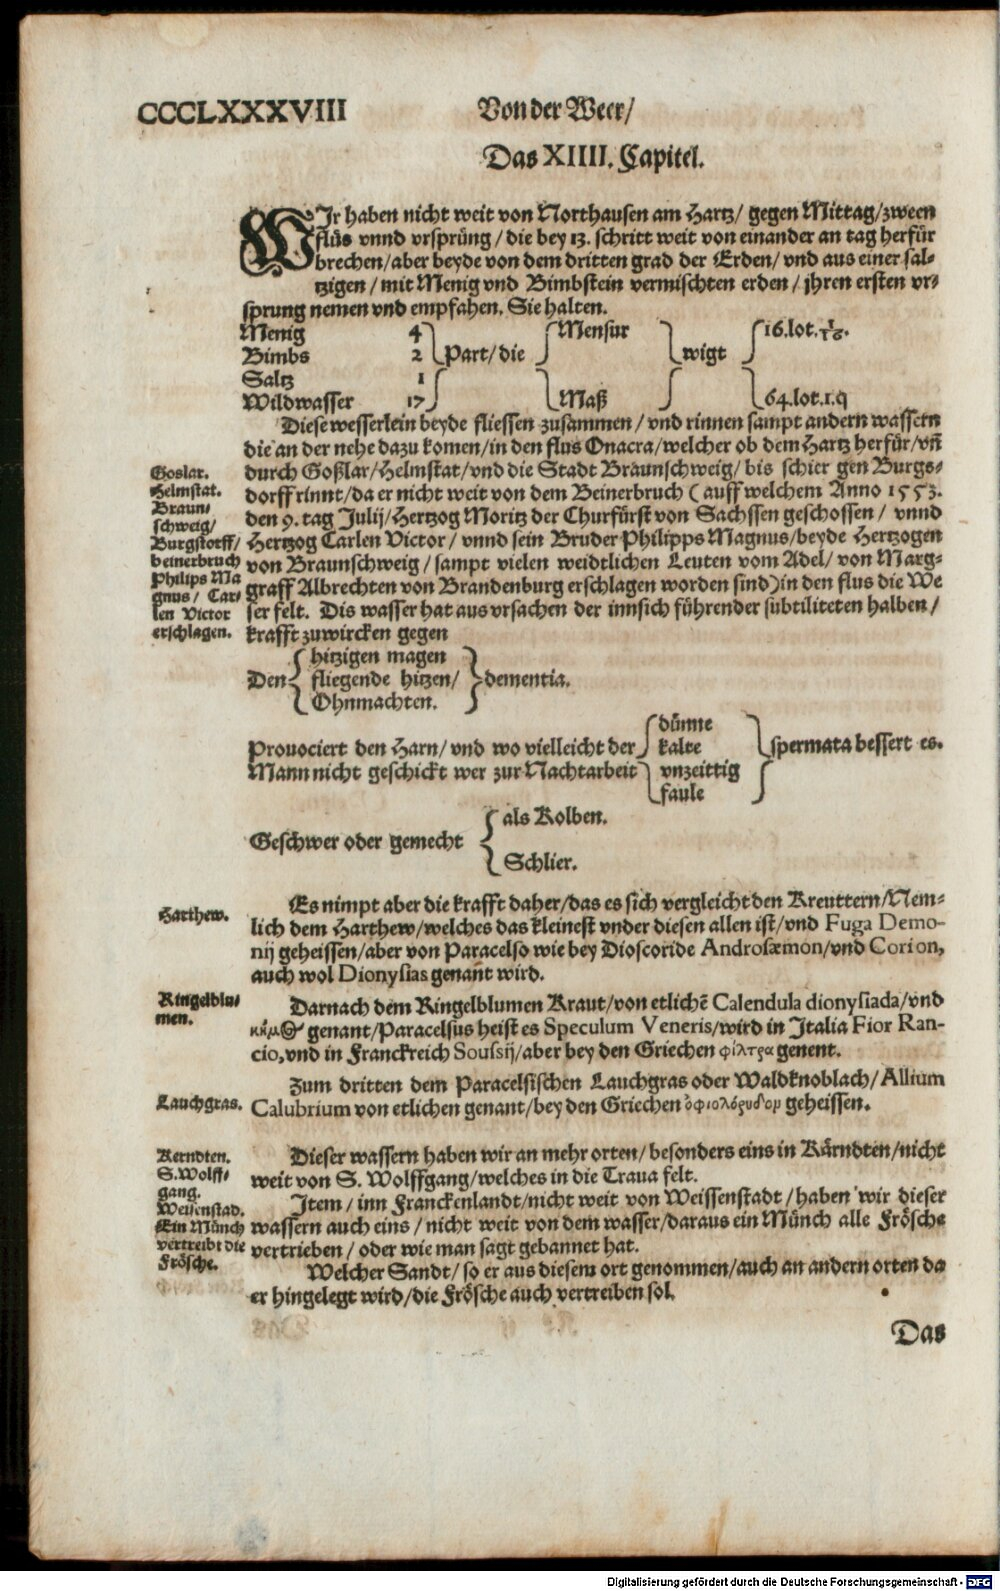 CCCCLXXXVIII
Von der Weer/
Das XIIII. Capitel.
WIr haben nicht weit von Northausen am Hartz/ gegen Mittag/zween
flüs vnnd vrsprüng/ die bey 13. schritt weit von einander an tag herfür
brechen/aber beyde von dem dritten grad der Erden/ vnd aus einer sal-
tzigen/ mit Menig vnd Bimbstein vermischten erden/ jhren ersten vr-
sprung nemen vnd empfahen. Sie halten.
Menig 4
Bimbs 2
Saltz 1
Wildwasser 17
Part/ die
Mensur
Maß
wigt
16. lot. 1/16.
64. lot. 1. q
Diese wesserlein beyde fliessen zusammen/ vnd rinnen sampt andern wassern
die an der nehe dazu komen/in den flus Onacra/welcher ob dem Hartz herfür/vñ
durch Goßlar/Helmstat/vnd die Stadt Braunschweig/ bis schier gen Burgs-
dorff rinnt/da er nicht weit von dem Beinerbruch (auff welchem Anno 1553.
den 9. tag Julij/Hertzog Moritz der Churfürst von Sachssen geschossen/ vnnd
Hertzog Carlen Victor/ vnnd sein Bruder Philipps Magnus/beyde Hertzogen
von Braunschweig/ sampt vielen weidtlichen Leuten vom Adel/ von Marg-
graff Albrechten von Brandenburg erschlagen worden sind) in den flus die We
ser felt. Dis wasser hat aus vrsachen der innsich führender subtiliteten halben/
krafft zuwircken gegen
Goslar.
Helmstat.
Braun/
schweig/
Burgstorff/
beinerbruch
Philips Ma
gnus/ Car/
len Victor
erschlagen.
Den
hitzigen magen
fliegende hitzen/
Ohnmachten.
dementia.
Prouociert den Harn/ vnd wo vielleicht der
Mann nicht geschickt wer zur Nachtarbeit
dünne
kalte
vnzeittig
faule
spermata bessert es.
Geschwer oder gemecht
als Kolben.
Schlier.
Es nimpt aber die krafft daher/das es sich vergleicht den Kreuttern/Nem-
lich dem Harthew/welches das kleinest vnder diesen allen ist/vnd Fuga Demo-
nij geheissen/aber von Paracelso wie bey Dioscoride Androsæmon/vnd Corion,
auch wol Dionysias genant wird.
Harthew.
Darnach dem Ringelblumen Kraut/von etlichē Calendula dionysiada/vnd
genant/Paracelsus heist es Speculum Veneris/wird in Italia Fior Ran-
cio,vnd in Franckreich Soussij/aber bey den Griechen φίλτρα genent.
Ringelblu/
men.
Zum dritten dem Paracelsischen Lauchgras oder Waldknoblach/Allium
Calubrium von etlichen genant/bey den Griechen ὀφιοσκόρυδομ geheissen.
Lauchgras.
Dieser wassern haben wir an mehr orten/ besonders eins in Kärndten/nicht
weit von S. Wolffgang/welches in die Traua felt.
Item/ inn Franckenlandt/nicht weit von Weissenstadt/haben wir dieser
wassern auch eins/ nicht weit von dem wasser/daraus ein Münch alle Frösche
vertrieben/ oder wie man sagt gebannet hat.
Welcher Sandt/ so er aus diesem ort genommen/auch an andern orten da
er hingelegt wird/die Frösche auch vertreiben sol.
Kerndten.
S. Wolff/
gang.
Weissenstad.
Ein Münch
vertreibt die
Frösche.
Das
Digitalisierung gefördert durch die Deutsche Forschungsgemeinschaft - DFG